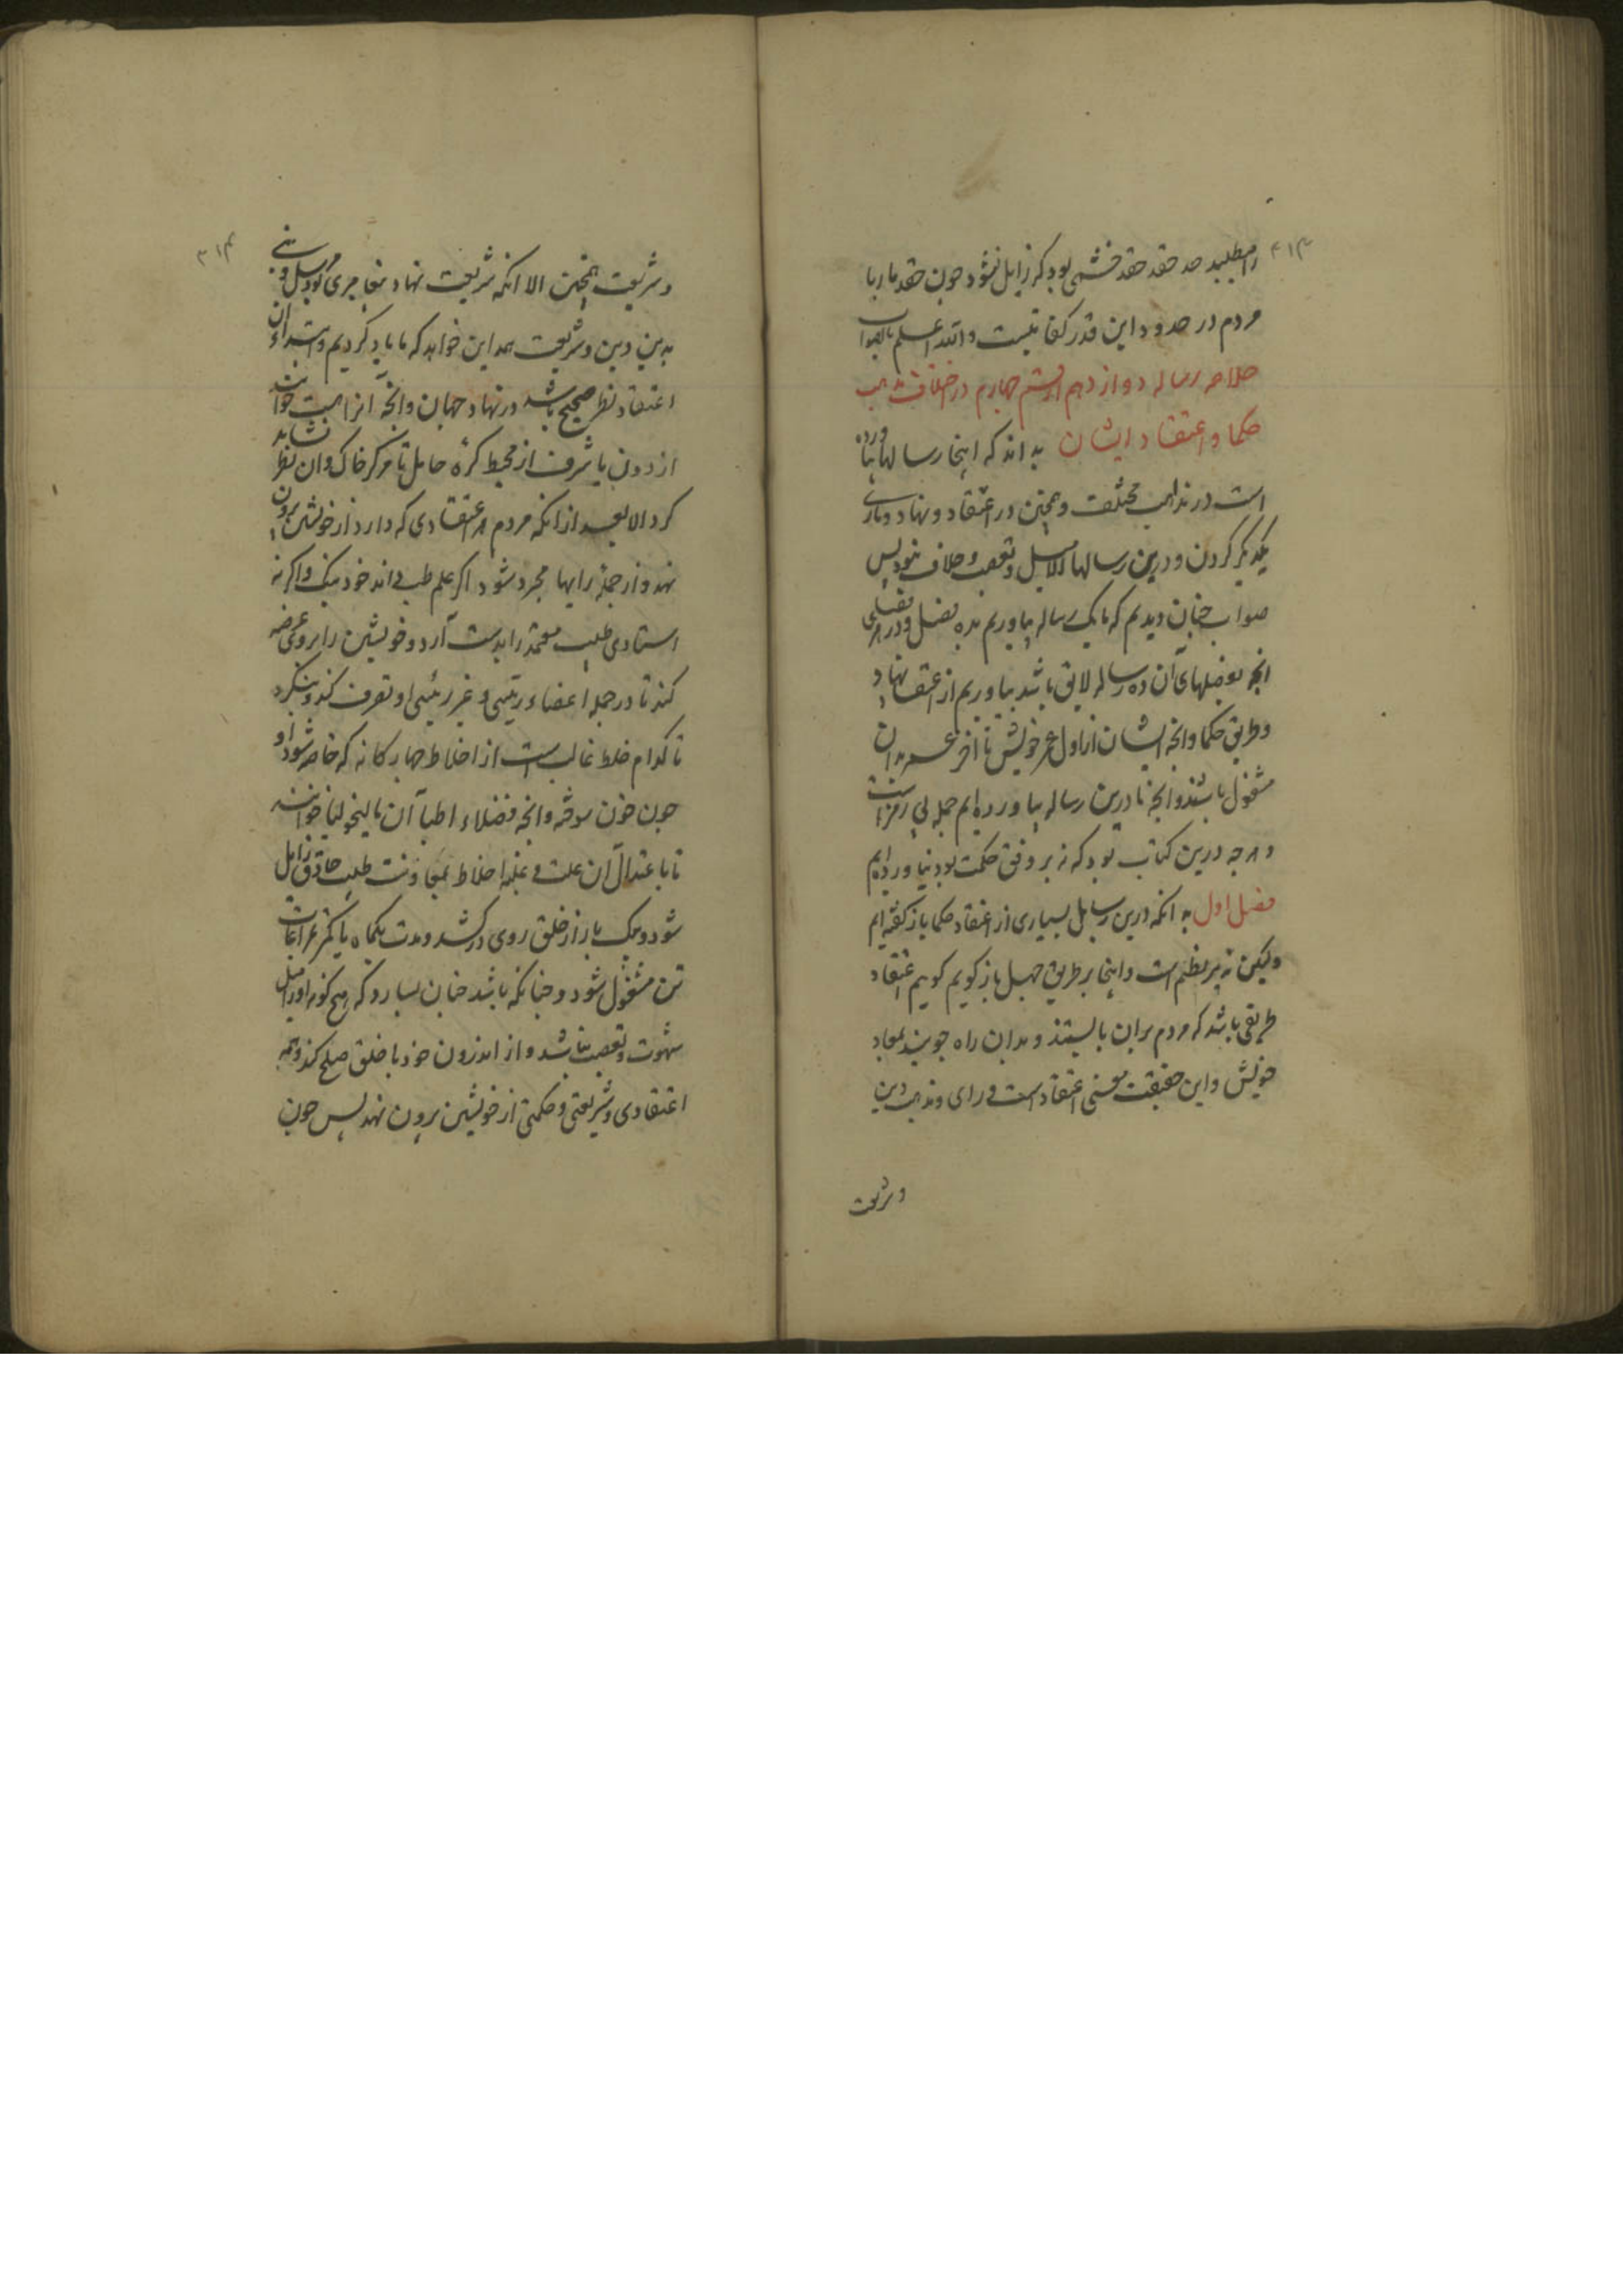 را طلبید حد حقد حقد خشمی بود که زایل نشود چون حقد مار با
مردم در حدود این قدر کفایتست والله اعلم بالصواب
خلاصه رساله دوازدهم از قسم چهارم در اختلاف مذاهب
حکما و اعتقاد ایشان بدانکه اینجا رسالها بیاورده
است در مذاهب مختلف و همچنین در اعتقاد و نهاد و یاری
یکدیگر کردن و درین رسالها الا میل و تعصب و خلاف نبود پس
صواب چنان دیدیم که ما یک رساله بیاوریم بده فصل و در هر فصلی
آنچ بوصلهای آن ده رساله لایق باشد بیاوریم از اعتقاد نهاد
و طریق حکما وانچه ایشان از اول عمر خویش تا آخر عمر بدان
مشغول باشند وانچه ما درین رساله بیاورده ایم جمله بی رمزاست
و هرچه درین کتاب بود که نه بر وفق حکمت بود نیاورده ایم
فصل اول بدانکه درین رسایل بسیاری از اعتقاد حکما باز گفته ایم
ولیکن نه بر نظم است و اینجا بر طریق سهل باز گویم گوییم اعتقاد
طریقی باشد که مردم بران بایستند و بدان راه جویند بمعاد
خویش و این حقیقت معنی اعتقاد است و رای و مذهب و دین
وشریعت
و شریعت همچنین الا انکه شریعت نهاد پیغامبری بود مرسل و نبی
بدین دین و شریعت همه این خواهد که ما یاد کردیم و ابتداء آن
اعتقاد نظر صحیح باشد در نهاد جهان وانچه آنراهست خواست
از دون یا شرف از محیط کره حامل تا مرکز خاک و ان نظر نشاید
کرد الا بعد از انکه مردم هر اعتقادی که دارد از خویشتن برون
نهد و از جمله رایها مجرد شود اگر علم طب داند خود نیک و اگر نه
استادی طبیب معتمد را بدست آرد و خویشتن را برو عرضه
کند تا در جمله اعضاء رئیسی و غیر رئیسی او تصرف کند و بنگرد
تا کدام خلط غالب است از اخلاط چهارگانه که خاصه شود او
چون خون سوخته وانچه فضلاء اطبا آن مالیخولیا خوانند
تا با عتدال آن علت و غلبه اخلاط بمعاونت طبیب حاذق زایل
شود و یک بار از خلق روی درکشد و مدت یکماه یا کمتر بمراعات
تن مشغول شود و چنانکه باشد چنان بسازد که هیچ گونه او را میل
شهوت و تعصب نباشد و از اندرون خود با خلق صلح کند و همه
اعتقادی و شریعتی و حکمتی از خویشتن برون نهد پس چون